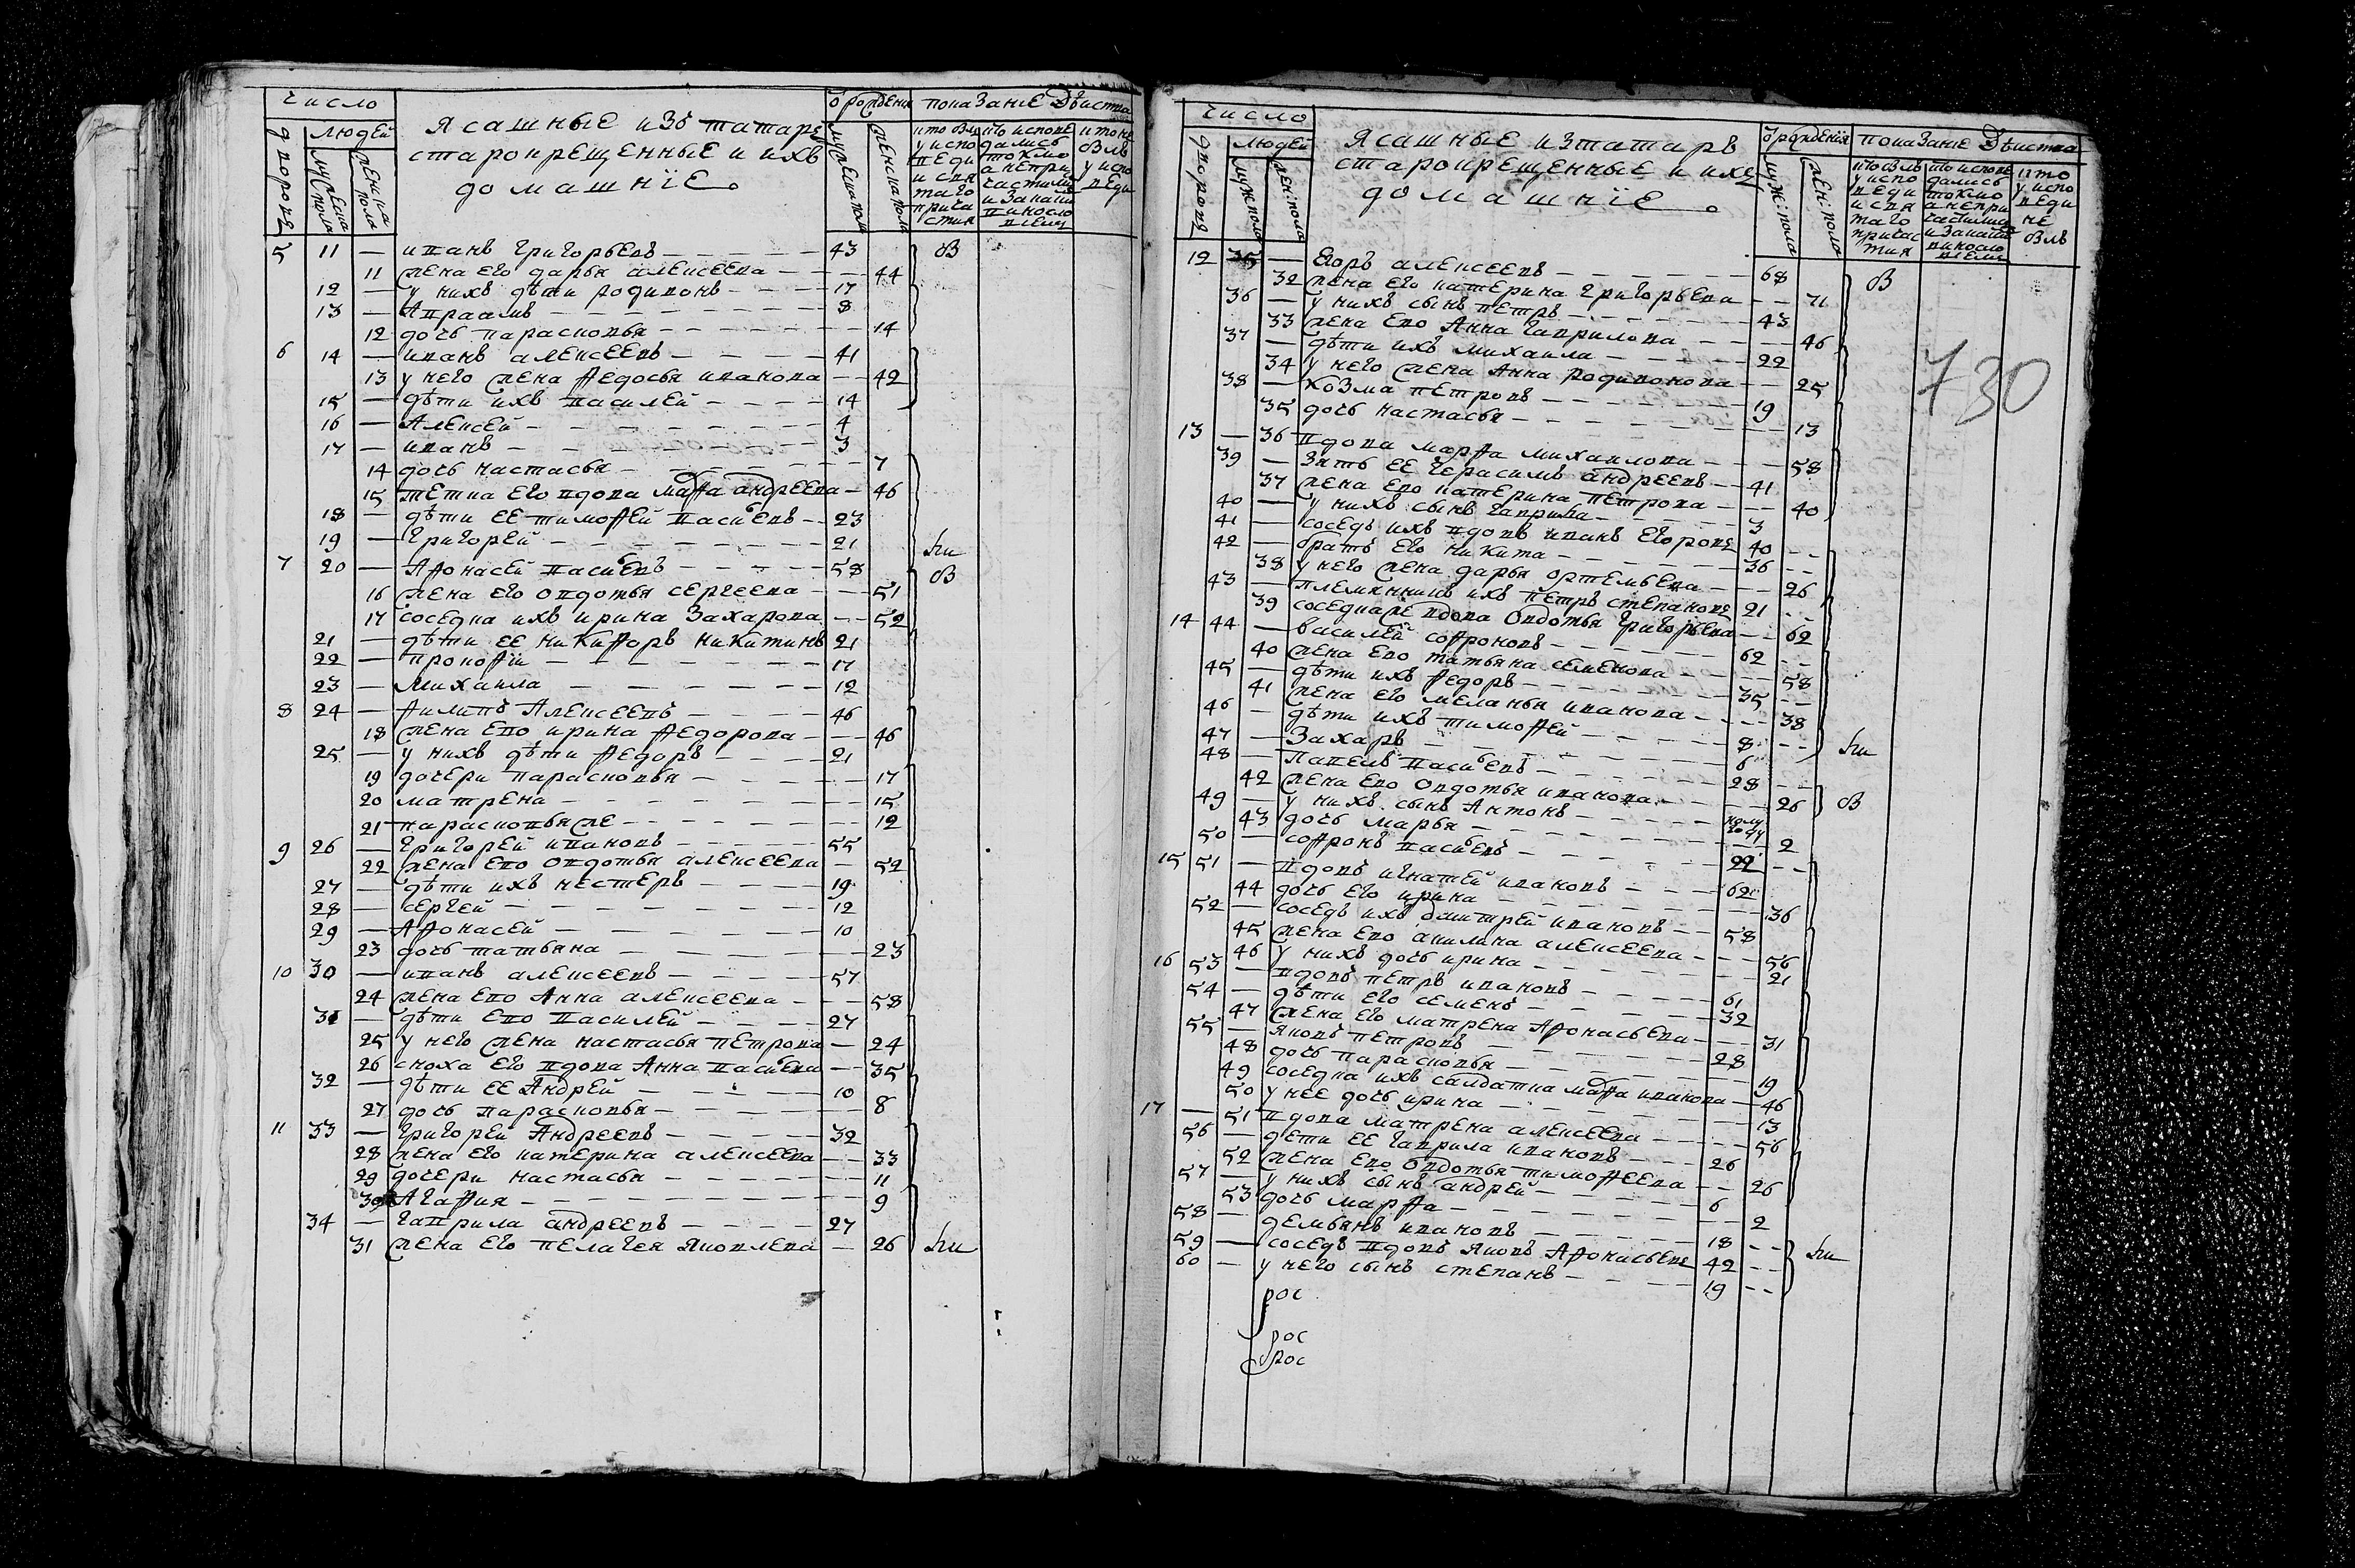 число
людей
дворовъ
мужеска пола
женска пола
ясашные изъ татаръ
старокрещенные и ихъ
домашнїе.
ѿ рождения
мужеска пола
женска пола
показание действа
кто былъ у исповеди и святаго причастия
кто исповедались токмо а не причастились и за каким виносло­влением
кто не былъ у исповеди
5 11 — иванъ григорьевъ — 43 ѿ
11 жена его дарья алексеева — 44
12 — у нихъ дѣти родивонъ — 17
13 — Авраамъ — 8
12 дочь парасковья — 14
6 14 — иванъ алексеевъ — 41
13 у него жена ѳедосья иванова — 42
15 — дѣти ихъ василей — 14
16 — Алексей — 4
17 — иванъ — 3
14 дочь настасья — 7
15 тетка его вдова марѳа андреева — 46
18 — дѣти ее тимоѳей васильевъ — 23
19 — григорей — 21
7 20 — Аѳонасей васильевъ — 58 ѿ
16 жена его овдотья сергеева — 51
17 соседка ихъ ирина Захарова — 52
21 — дѣти ее никиѳоръ никитинъ 21
22 — прокоѳїй — 17
23 — Михаила — 12
8 24 — ѳилипъ Алексеевъ — 46
18 жена ево ирина ѳедорова — 46
25 — у нихъ дѣти ѳедоръ — 21
19 дочери парасковья — 17
20 матрена — 15
21 парасковья же — 12
9 26 — григорей ивановъ — 55
22 жена ево овдотья алексеева — 52
27 — дѣти ихъ нестеръ — 19
28 — сергей — 12
29 — Аѳонасей — 10
23 дочь татьяна — 23
10 30 — иванъ алексеевъ — 57
24 жена ево Анна алексеева — 58
31 — дѣти ево василей — 27
25 у него жена настасья петрова — 24
26 сноха его вдова Анна васильева — 35
32 — дѣти ее Андрей — 10
27 дочь парасковья — 8
11 33 — григорей Андреевъ — 32
28 жена его катерина алексеева — 33
29 дочери настасья — 11
30 Агаѳия — 9
34 — гаврила андреевъ — 27
31 жена его пелагея яковлева — 26
число
людей
дворовъ
муж: пола
жен: пола
Ясашные изтатаръ
старокрещенные и ихъ
домашнїе.
ѿ рожденїя
муж: пола
жен: пола
показанїе действа
кто былъ у исповеди и святаго причастия
кто исповедались токмо а не причастились и за каким виносло­влением
кто у исповеди не былъ
730
12 35 — Егоръ алексеевъ — 68 ѿ
32 жена его катерина григорьева — 71
36 — у нихъ сынъ петръ — 43
33 жена ево Анна гаврилова — 46
37 — дѣти ихъ михаила — 22
34 у него жена Анна родивонова — 25
38 — козма петровъ — 19
35 дочь настасья — 13
13 — 36 вдова марѳа михаилова — 58
39 — зять ее герасимъ андреевъ — 41
37 жена ево катерина петрова — 40
40 — у нихъ сынъ гаврила — 3
41 — соседъ ихъ вдовъ иванъ Егоровъ 40
42 — братъ его никита — 36
38 у него жена дарья ортемьева — 26
43 — племянникъ ихъ петръ степановъ 21
39 соседка же вдова овдотья григорьева — 62
14 44 — василей соѳроновъ — 62
40 жена ево татьяна семенова — 58
45 — дѣти ихъ ѳедоръ — 35
41 жена его меланья иванова — 38
46 — дѣти ихъ тимоѳей — 8
47 — Захаръ — 6
48 — Павелъ васильевъ — 28
42 жена ево овдотья иванова — 26 ѿ
49 — у нихъ сынъ Антонъ — полу году
43 дочь марья — 2
50 — соѳронъ васильевъ — 22
15 51 — вдовъ игнатей ивановъ — 62
44 дочь его ирина — 36
52 — соседъ ихъ дмитрей ивановъ — 58
45 жена ево акилина алексеева — 56
46 у нихъ дочь ирина — 21
16 53 — вдовъ петръ ивановъ — 61
54 — дѣти его семенъ — 32
47 жена его матрена Аѳонасьева — 31
55 — яковъ петровъ — 28
48 дочь парасковья — 19
49 соседка ихъ салдатка марѳа иванова — 46
50 у нее дочь ирина — 13
17 — 51 вдова матрена алексеева — 56
56 — дети ее гаврила ивановъ — 26
52 жена ево овдотья тимоѳеева — 26
57 — у нихъ сынъ андрей — 6
53 дочь марѳа — 2
58 — демьянъ ивановъ — 18
59 — соседъ вдовъ яковъ Аѳонасьевъ 42
60 — у него сынъ степанъ — 19